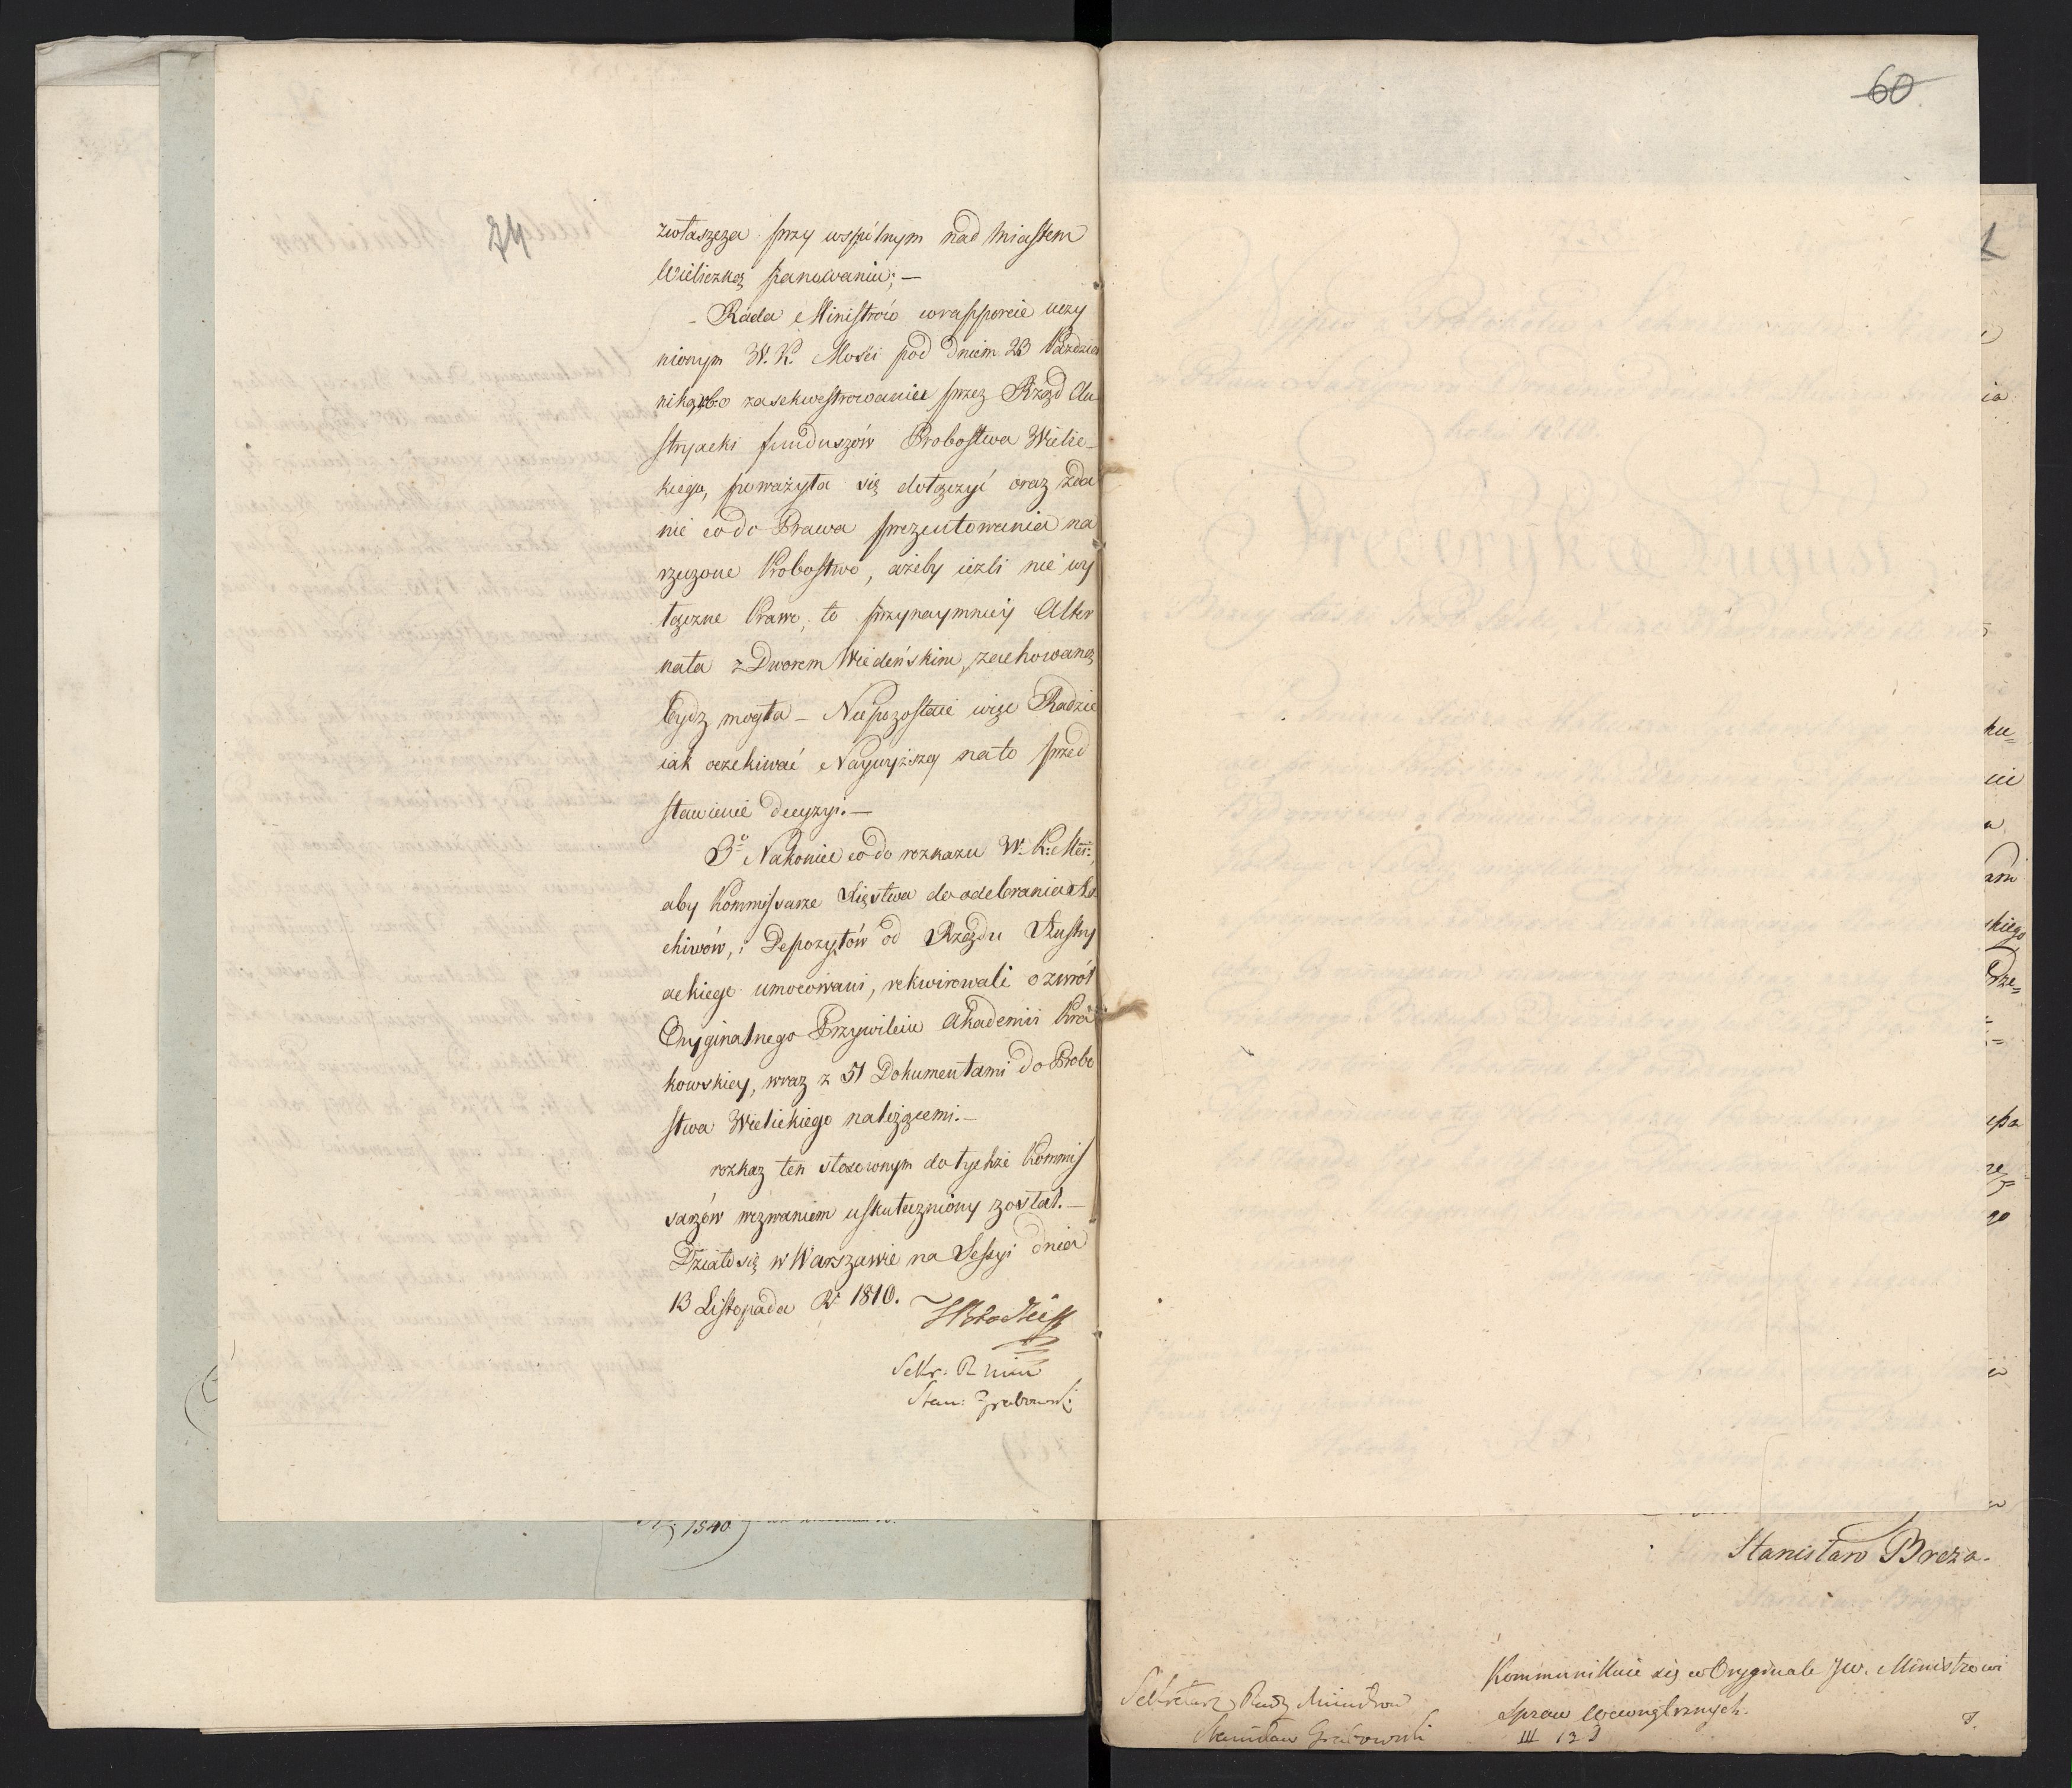 34
zwłaszcza przy wspólnym nad Miastem
Wieliczką panowaniu; —
- Rada Ministrów w rapporcie uczy
nionym W. K. Mości pod dniem 23 Paździer
nika zasekwestrowanie przez Rząd Au
stryacki funduszów Probostwa Wielic-
kiego, poważyła się dołączyć oraz zda
nie co do Prawa prezentowania na
rzeczone Probostwo, ażeby ieżli nie wy
łączne Prawo, to przynaymniey Alter
nata z Dworem Wiedeńskim zachowaną
bydz mogła — Nie pozostaie więc Radzie
iak oczekiwać Naywyższey na to przed
stawienie decyzyi. —
3o Nakoniec co do rozkazu W. K: Mci:,
aby Kommissarze Xięstwa do odebrania Ar
chiwów, i Depozytów od Rządu Austry
ackiego umocowani, rekwirowali o zwrót
Oryginalnego Przywileiu Akademii Kra
kowskiey, wraz z 51 Dokumentami do Probo
stwa Wielickiego należącemi. —
rozkaz ten stosownym do tychże Kommis
sarzów wezwaniem uskuteczniony został. —
Działo się w Warszawie na Sessyi dnia
13 Listopada R. 1810.
Sekr. R Min
Stan: Grabowski
1540
60
Stanisław Breza.
Sekretarz Rady Ministrów
Stanisław Grabowski
Kommunikuie się w Oryginale JW. Ministrowi
Spraw Wewnętrznych.
III 123